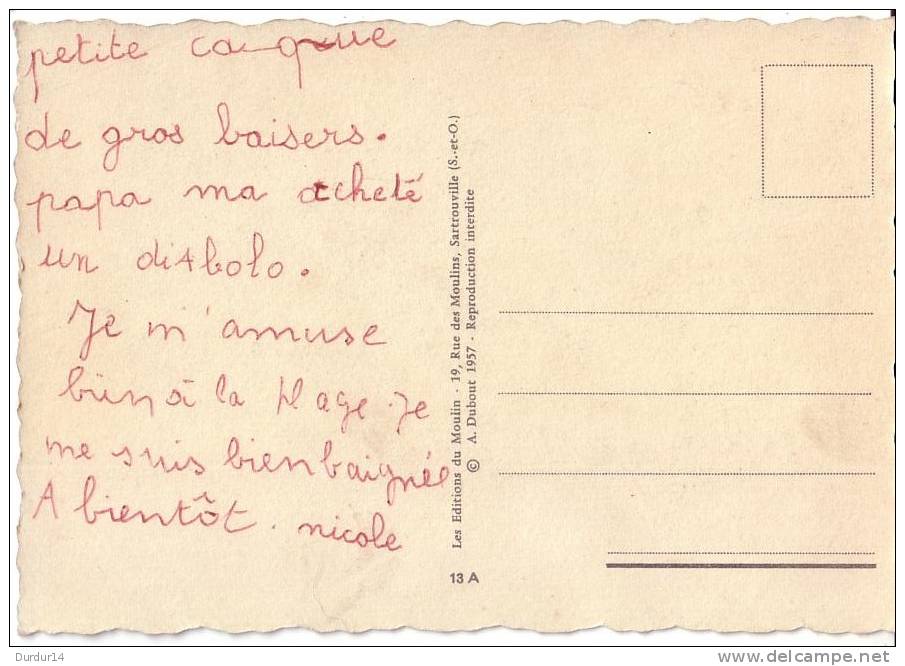 petite ca que
de gros baisers.
papa ma acheté
un diabolo.
Je m'amuse
bien à la plage. Je
me suis bien baignée
A bientôt. nicole
Les Editions du Moulin - 19, Rue des Moulins, Sartrouville (S.-et-O.)
© A. Dubout 1957 - Reproduction interdite
13 A
Durdur14
www.delcampe.net